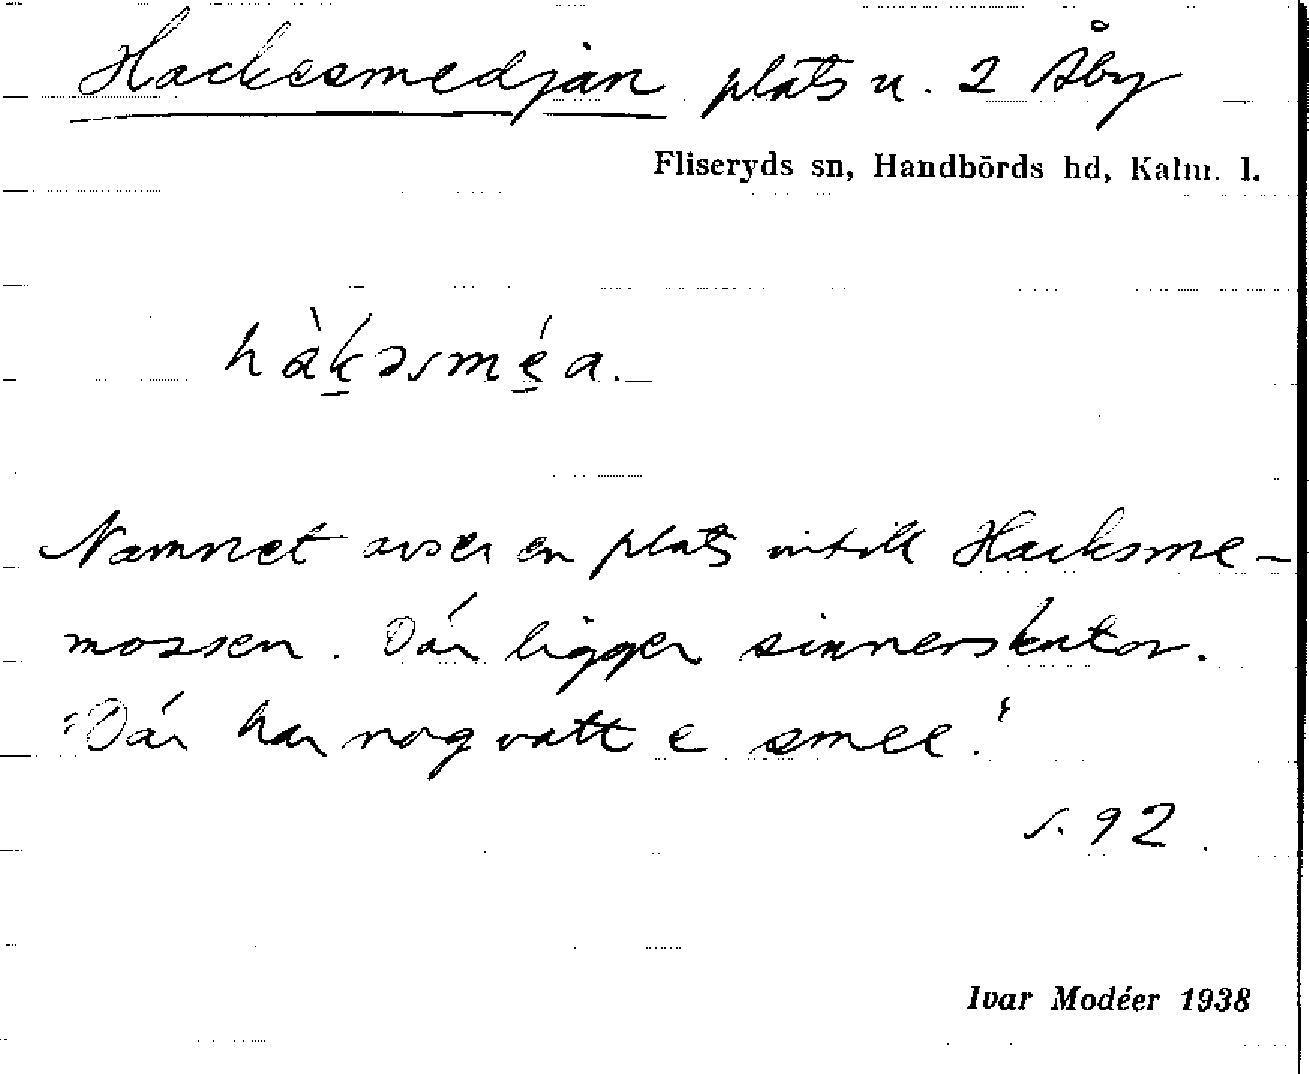 Hackesmedjan plats u. 2 Åby
Fliseryds sn, Handbörds hd, Kalm. l.
hàk̲əsmé̲a.
Namnet avser en plats intill Hacksme-
mossen. Där ligger sinnerskator.
"Där har nog vatt e smee."
s. 92.
Ivar Modéer 1938